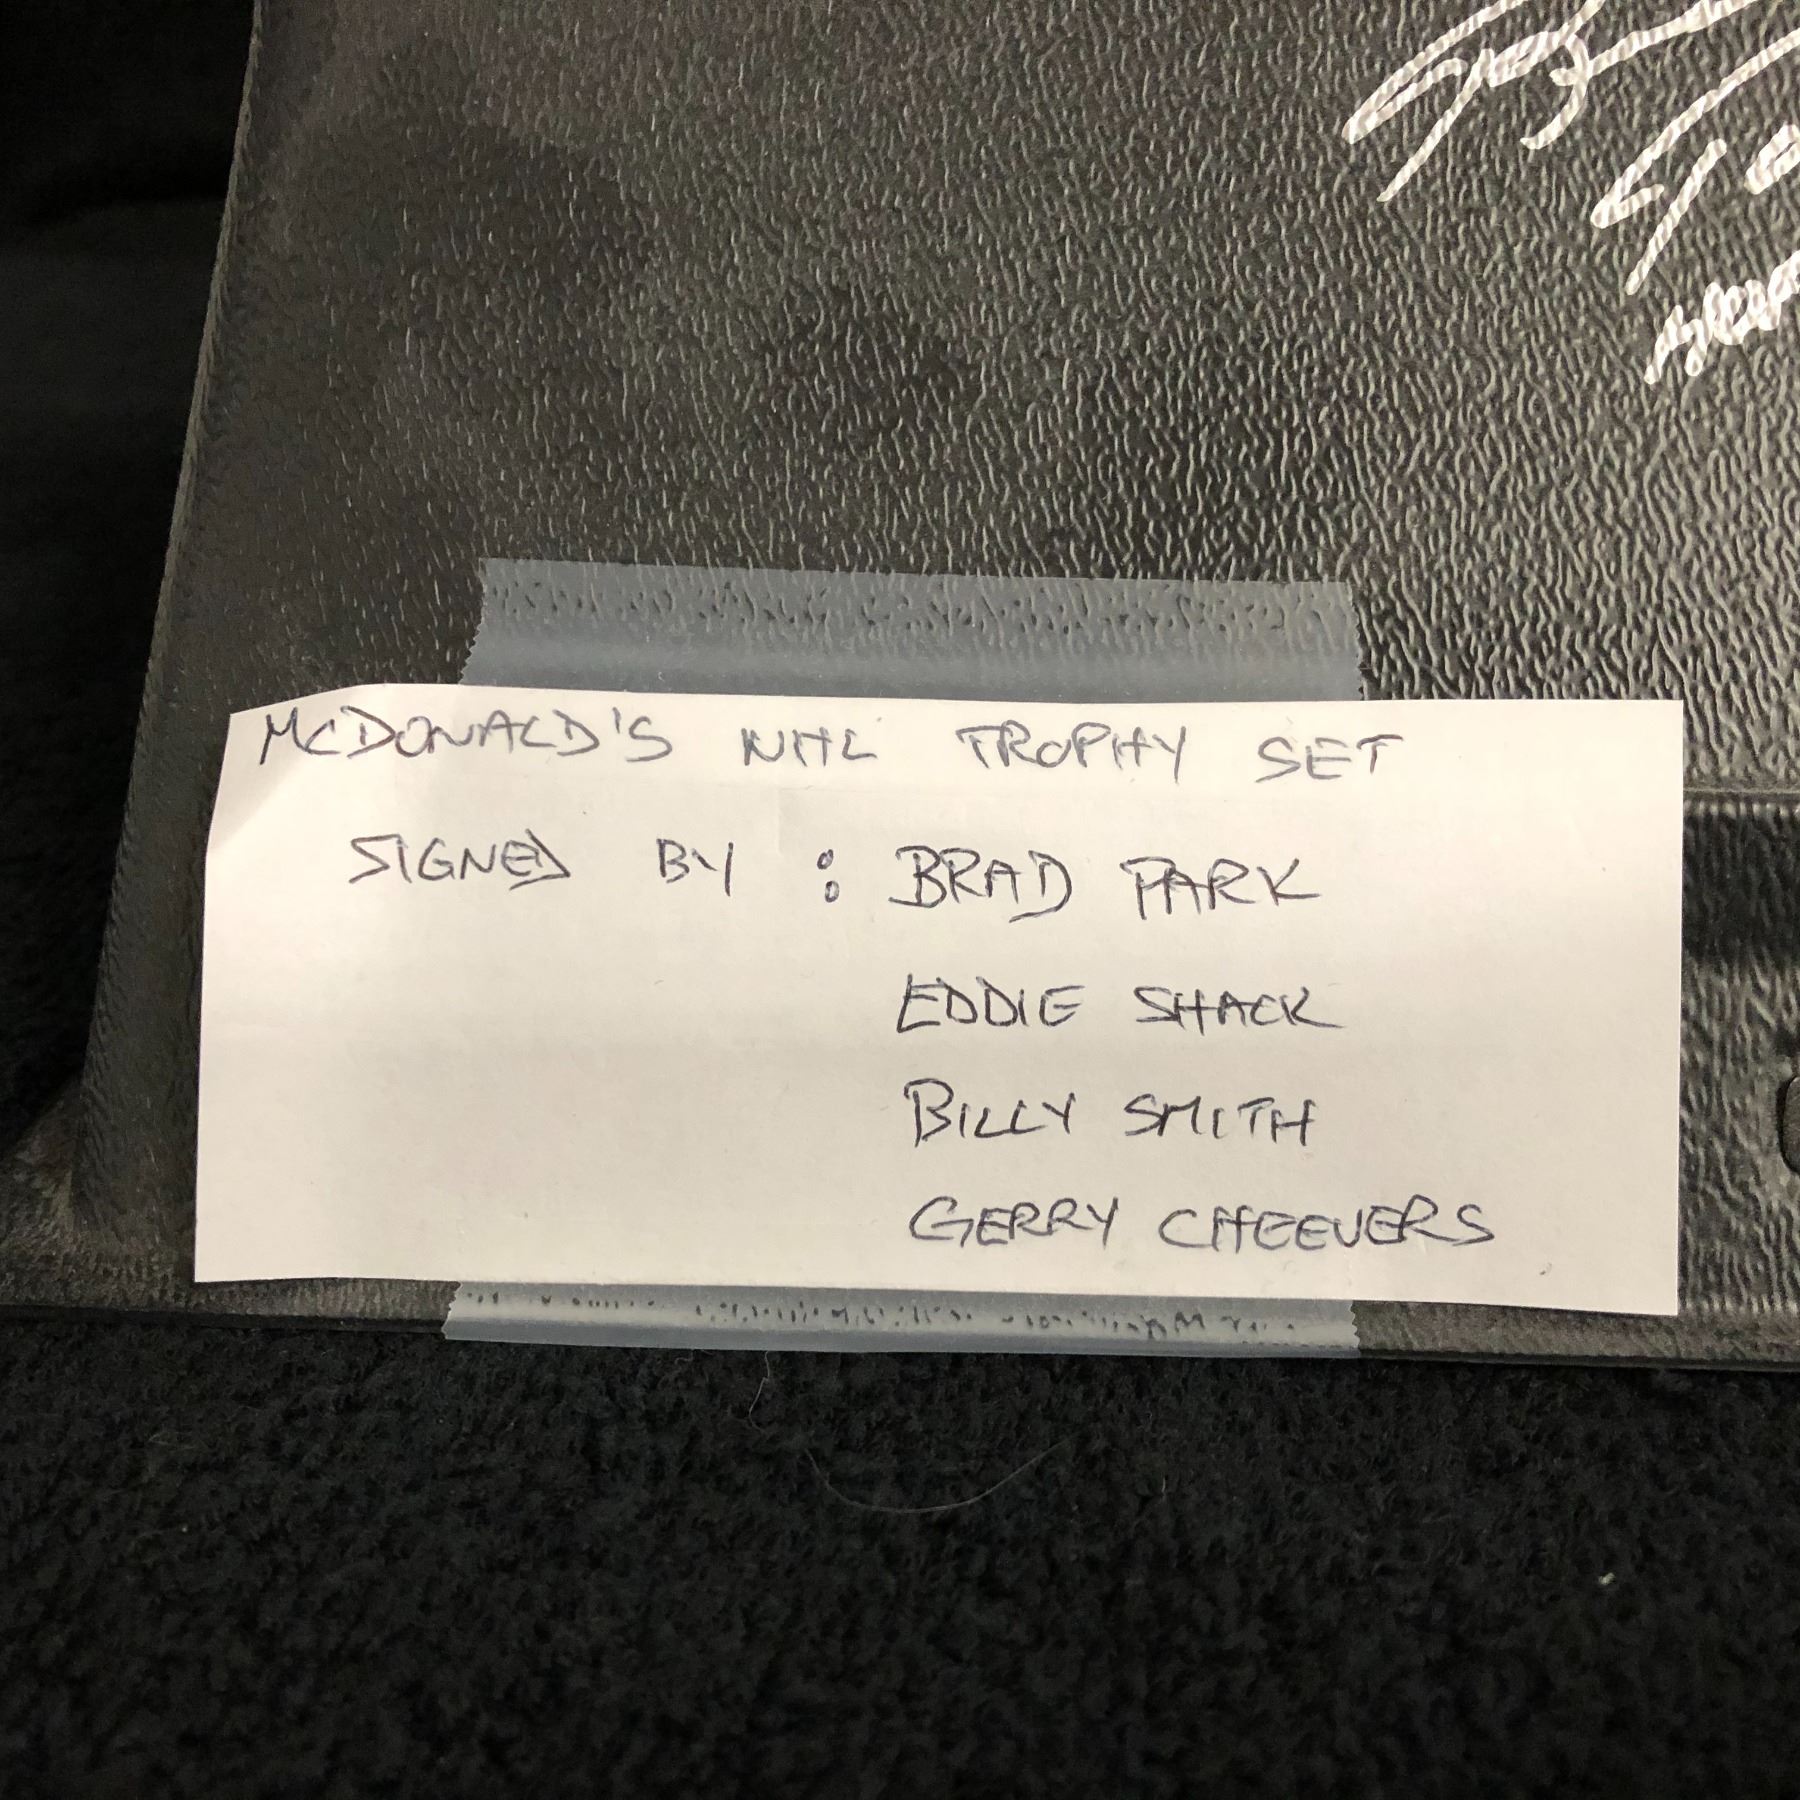 McDONALD'S NHL TROPHY SET
SIGNED BY : BRAD PARK
EDDIE SHACK
BILLY SMITH
GERRY CHEEVERS